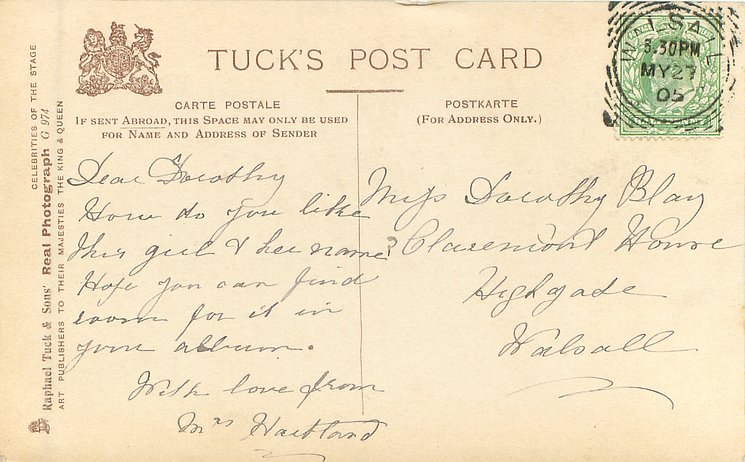 CELEBRITIES OF THE STAGE
Raphael Tuck & Sons' Real Photograph G 974
ART PUBLISHERS TO THEIR MAJESTIES THE KING & QUEEN
TUCK'S POST CARD
CARTE POSTALE
IF SENT ABROAD, THIS SPACE MAY ONLY BE USED
FOR NAME AND ADDRESS OF SENDER
POSTKARTE
(FOR ADDRESS ONLY.)
WALSALL
5.30PM
MY 27
05
Dear Dorothy
How do you like
this girl & her name?
Hope you can find
room for it in
your album.
With love from
Mrs
Miss Dorothy Blay
Claremont House
Highgate
Walsall